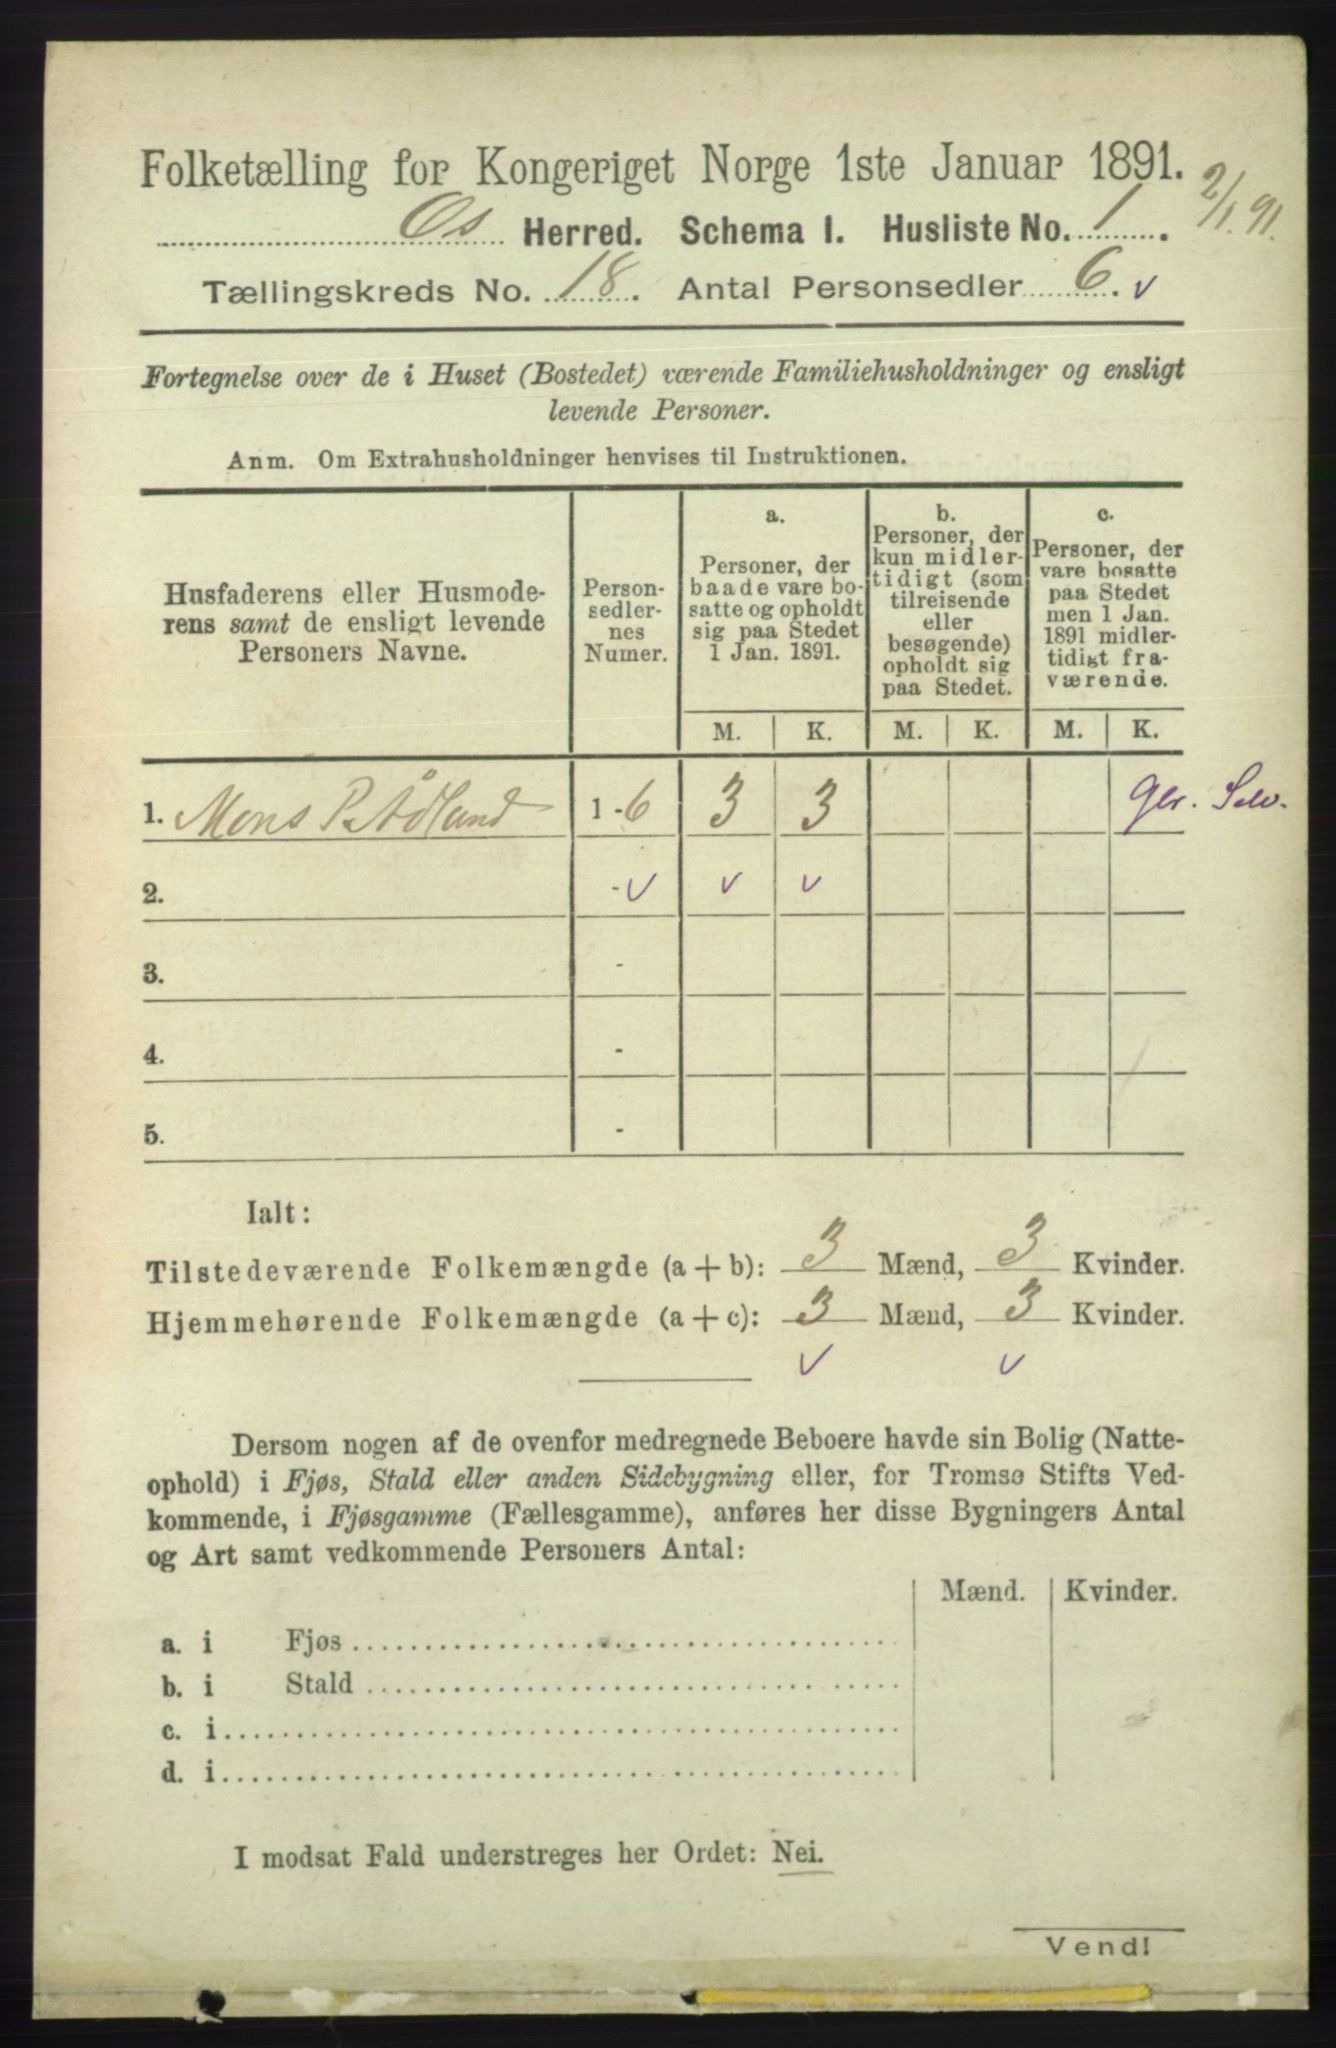 Folketælling for Kongeriget Norge 1ste Januar 1891.
2/1 91.
Os Herred. Schema I. Husliste No. 1.
Tællingskreds No. 18. Antal Personsedler 6. v
Fortegnelse over de i Huset (Bostedet) værende Familiehusholdninger og ensligt
levende Personer.
Anm. Om Extrahusholdninger henvises til Instruktionen.
Husfaderens eller Husmode-
rens samt de ensligt levende
Personers Navne.
Person-
sedler-
nes
Numer.
a.
Personer, der
baade vare bo-
satte og opholdt
sig paa Stedet
1 Jan. 1891.
b.
Personer, der
kun midler-
tidigt (som
tilreisende
eller
besøgende)
opholdt sig
paa Stedet.
c.
Personer, der
vare bosatte
paa Stedet
men 1 Jan.
1891 midler-
tidigt fra-
værende.
M. K. M. K. M. K.
1. Mons P. Ådland 1-6 3 3 Glr. Selv.
2. - v v v
3. -
4. -
5. -
Ialt:
Tilstedeværende Folkemængde (a + b): 3 Mænd, 3 Kvinder.
Hjemmehørende Folkemængde (a + c): 3 Mænd, 3 Kvinder.
v v
Dersom nogen af de ovenfor medregnede Beboere havde sin Bolig (Natte-
ophold) i Fjøs, Stald eller anden Sidebygning eller, for Tromsø Stifts Ved-
kommende, i Fjøsgamme (Fællesgamme), anføres her disse Bygningers Antal
og Art samt vedkommende Personers Antal:
Mænd. Kvinder.
a. i Fjøs
b. i Stald
c. i
d. i
I modsat Fald understreges her Ordet: Nei.
Vend!